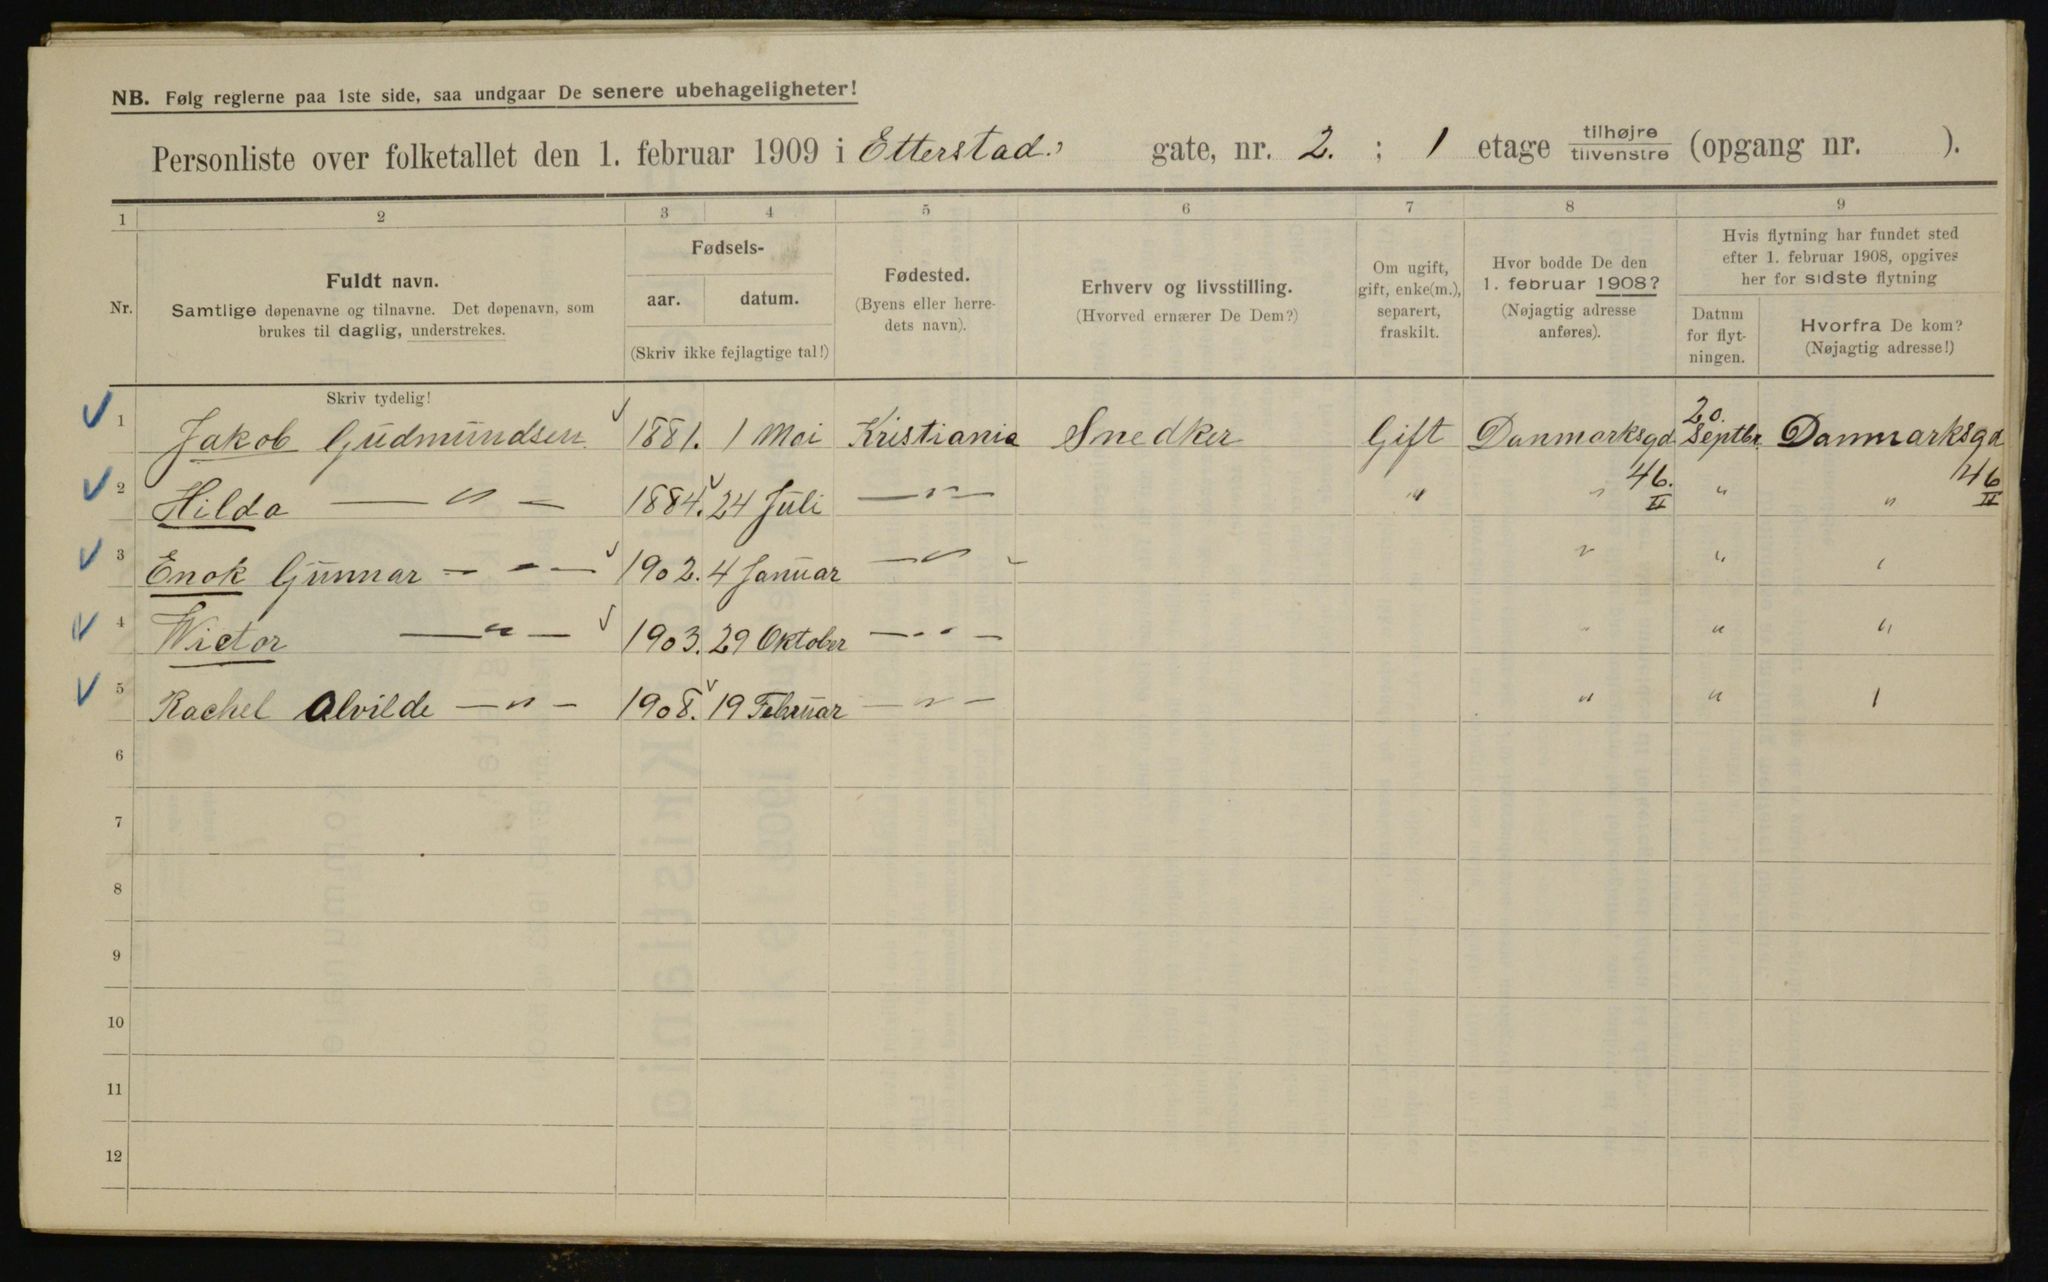 NB. Følg reglerne paa 1ste side, saa undgaar De senere ubehageligheter!
Personliste over folketallet den 1. februar 1909 i Etterstad.s gate, nr. 2. ; 1 etage tilhøjre/tilvenstre (opgang nr. ).
1 2 3 4 5 6 7 8 9
Nr.
Fuldt navn.
Samtlige døpenavne og tilnavne. Det døpenavn, som
brukes til daglig, understrekes.
Skriv tydelig!
Fødsels-
aar. datum.
(Skriv ikke fejlagtige tal!)
Fødested.
(Byens eller herre-
dets navn).
Erhverv og livsstilling.
(Hvorved ernærer De Dem?)
Om ugift,
gift, enke(m.),
separert,
fraskilt.
Hvor bodde De den
1. februar 1908?
(Nøjagtig adresse
anføres).
Hvis flytning har fundet sted
efter 1. februar 1908, opgives
her for sidste flytning
Datum
for flyt-
ningen.
Hvorfra De kom?
(Nøjagtig adresse!)
1 Jakob Gudmundsen 1881. 1 Mai Kristiania Snedker Gift Danmarksgd 46. II 20. Septbr. Danmarksgd 46 II
2 Hilda — " — 1884. 24 Juli — " — " " " "
3 Enok Gunnar — " — 1902. 4 Januar — " — " " "
4 Wictor — " — 1903. 29 Oktober — " — " " "
5 Rachel Alvilde — " — 1908. 19 Februar — " — " " "
6
7
8
9
10
11
12